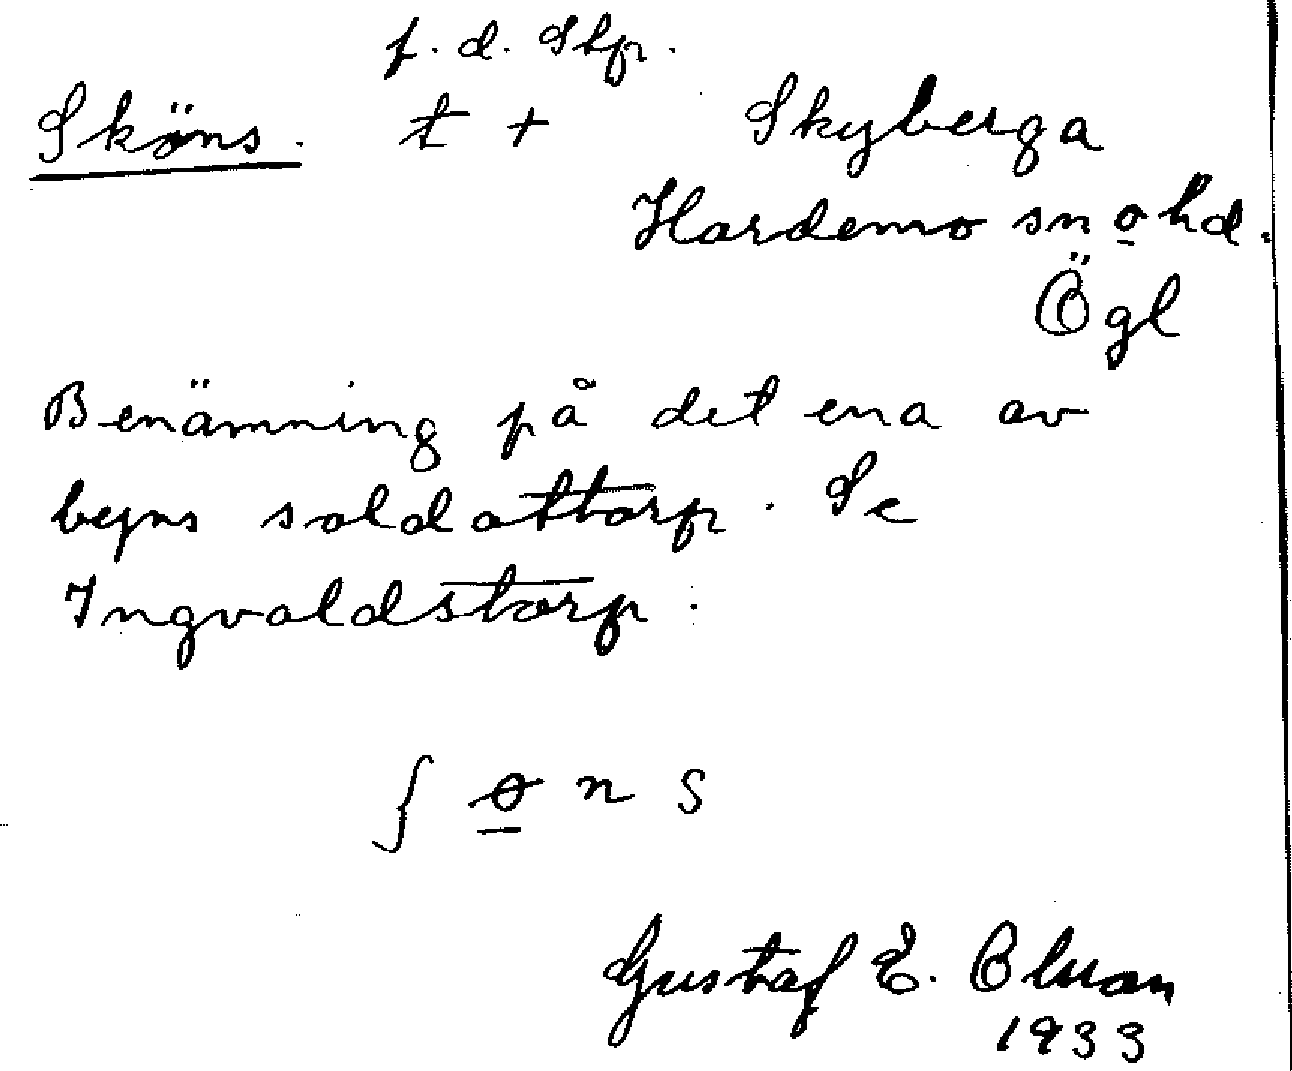 f. d. Stfr.
Sköns. t + Skyberga
Hardemo sn o hd.
Ögl
Benämning på det ena av
byns soldattorp. Se
Ingvaldstorp.
ʃ ɵ n s
Gustaf E. Olson
1933